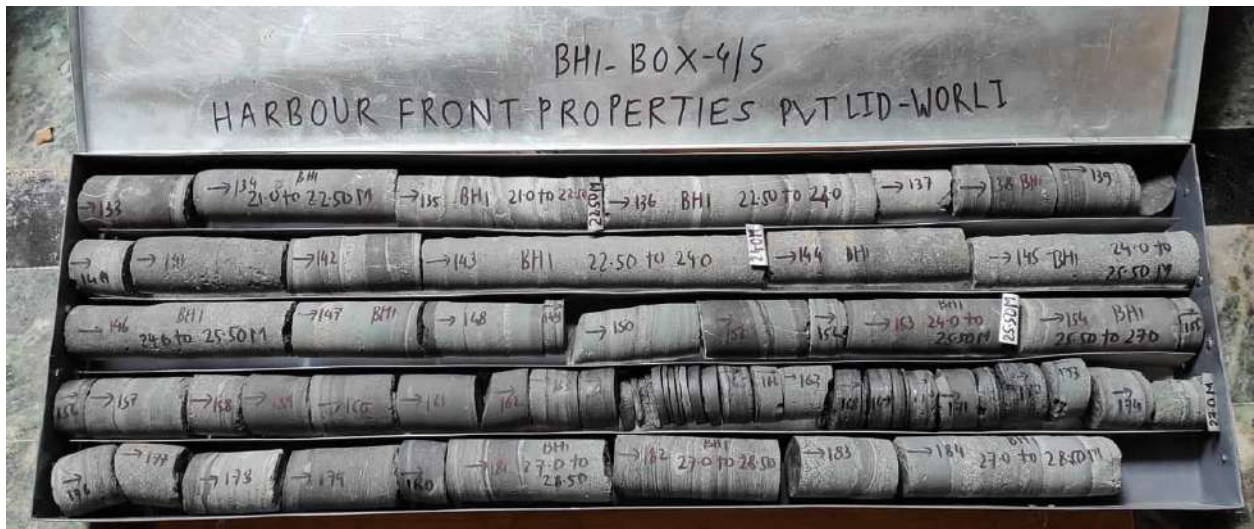 BH1-BOX-4/5
HARBOUR FRONT PROPERTIES PVT LTD-WORLI
→133 →134 BH1 21.0 to 22.50M →135 BH1 21.0 to 22.50 22.50M →136 BH1 22.50 to 24.0 →137 →138 BH1 →139
→141 →142 →143 BH1 22.50 to 24.0 24.0M →144 BH1 →145 BH1 24.0 to 25.50 M
→146 BH1 24.0 to 25.50M →147 BH1 →148 149 →150 →153 24.0 to 25.50M 25.50M →154 BH1 25.50 to 27.0 155
156 →157 →158 →159 →160 →161 →162 →163 →171 173 →174 27.0M
→176 →177 →178 →179 →180 →181 BH1 27.0 to 28.50 →182 BH1 27.0 to 28.50 →183 →184 BH1 27.0 to 28.50M